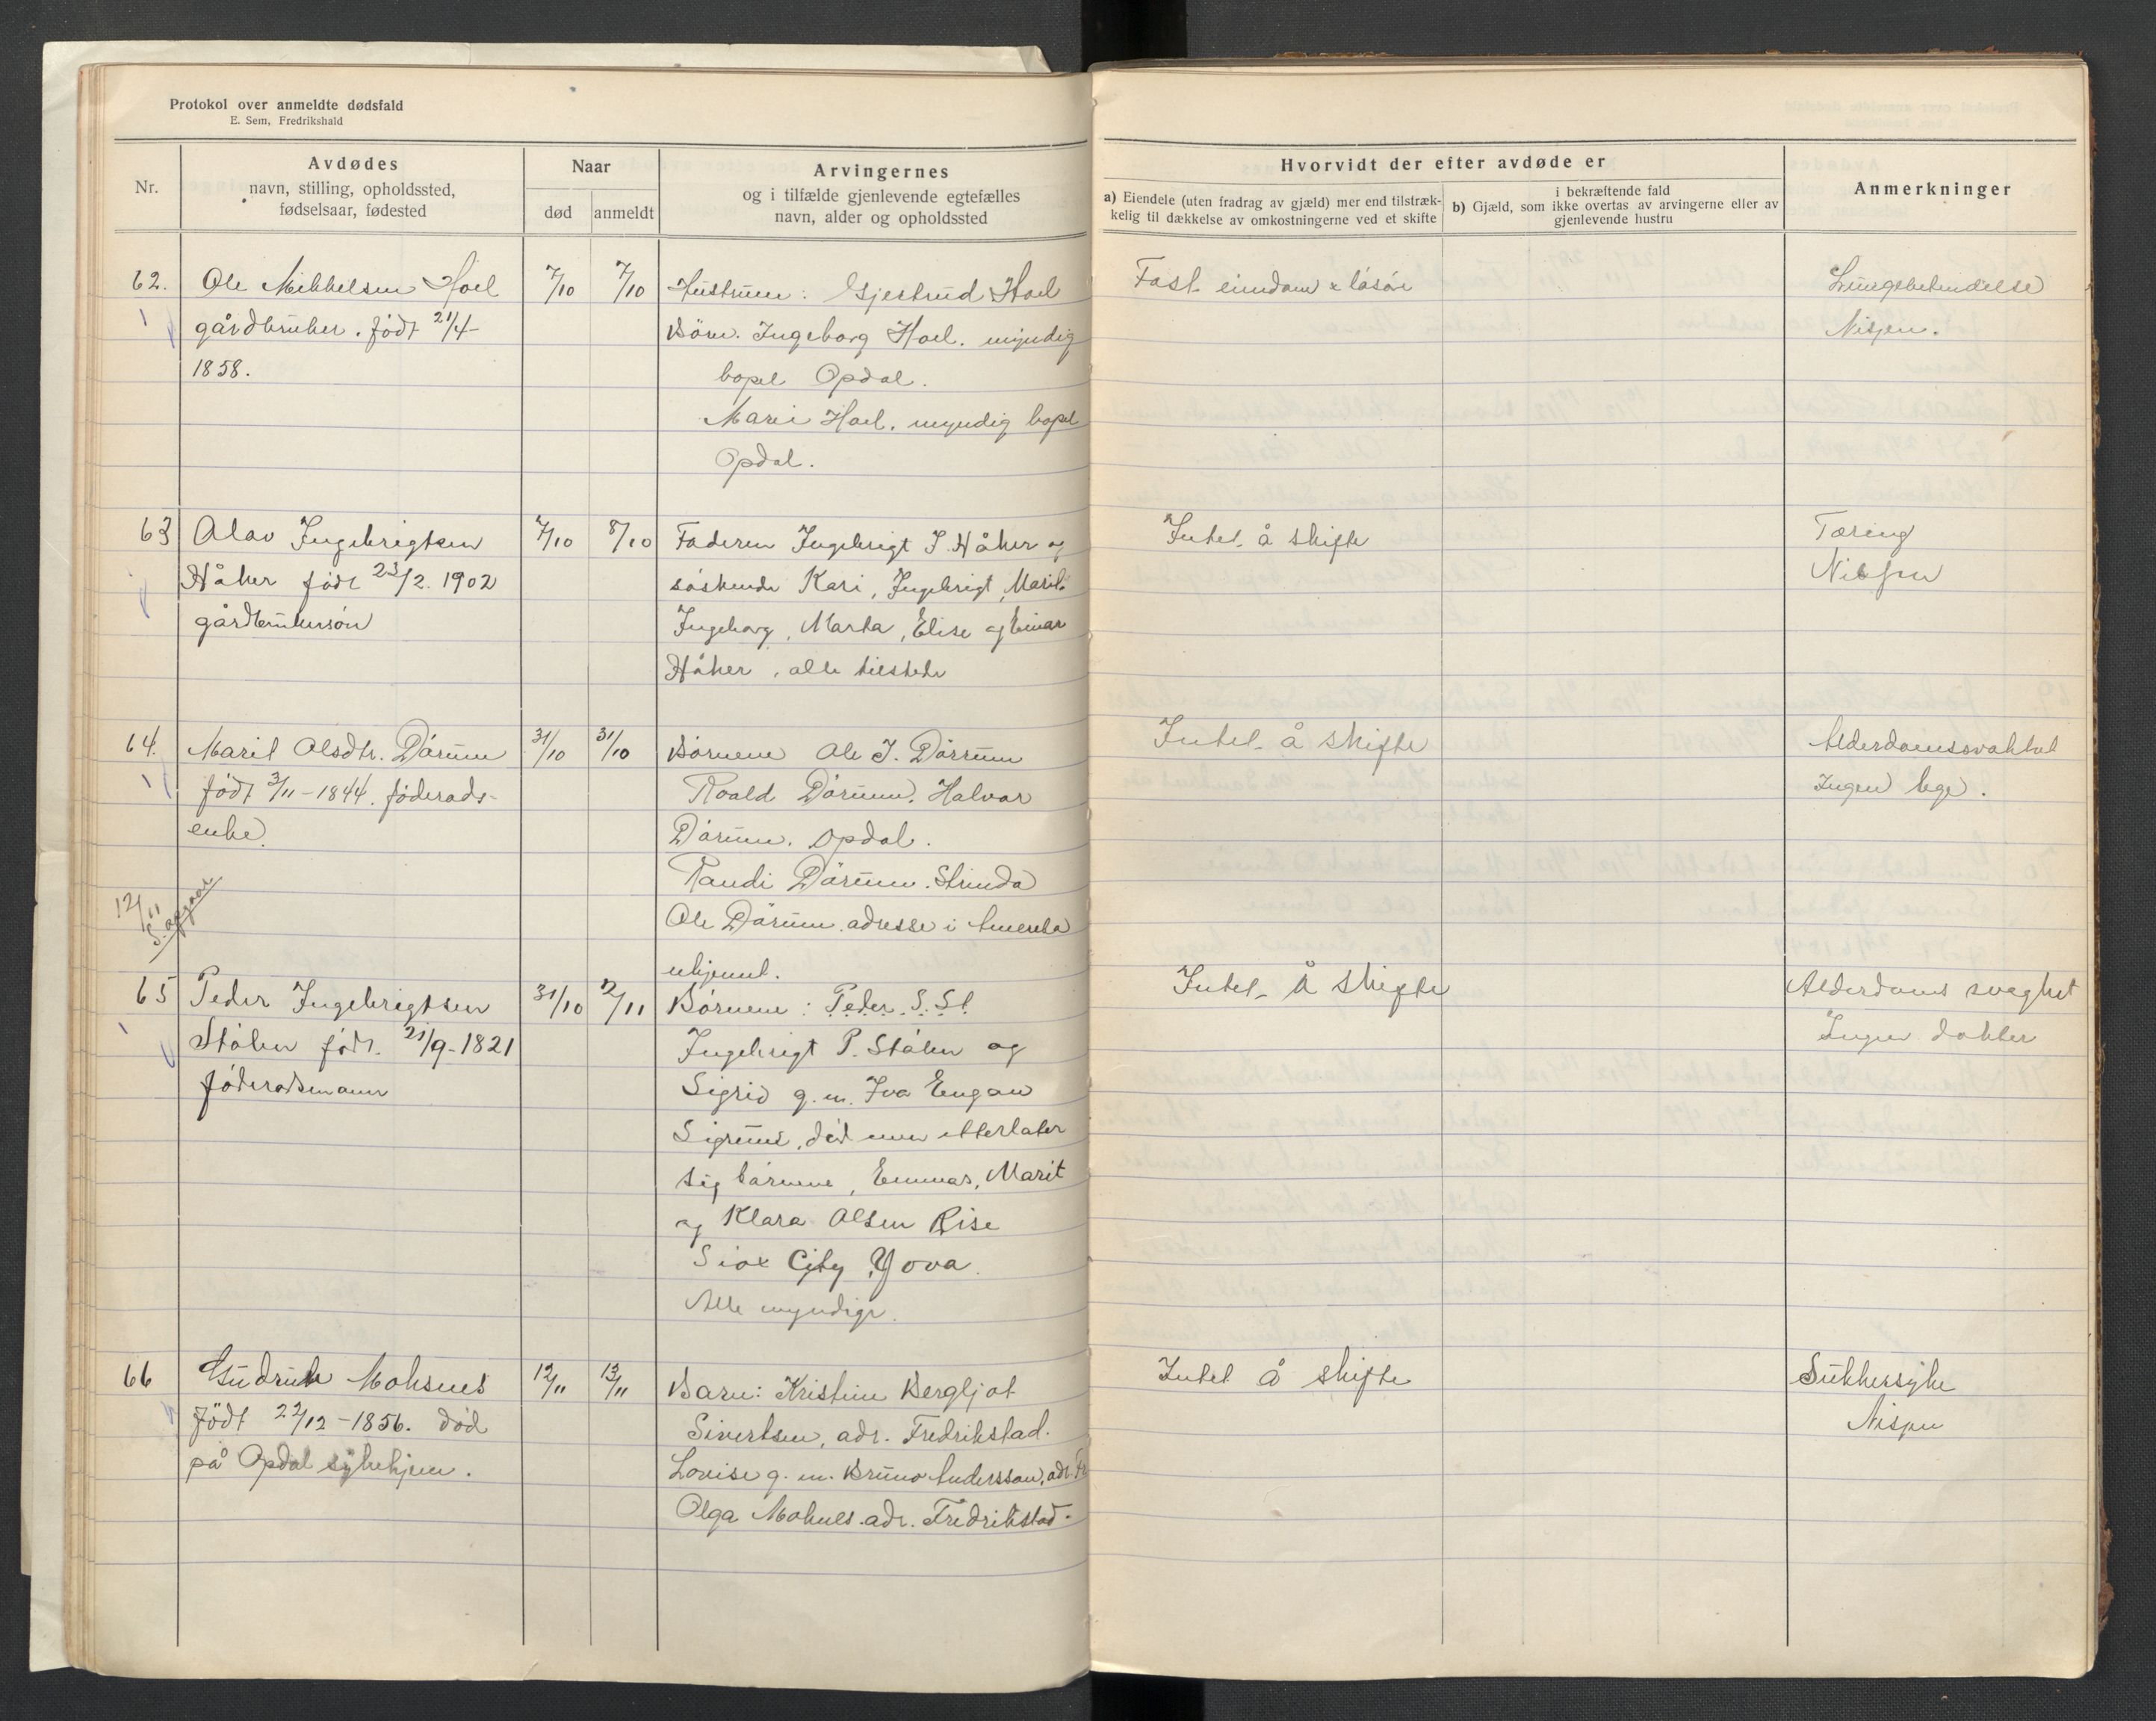 Protokol over anmeldte dødsfald
E. Sem, Fredrikshald
Nr.
Avdødes
navn, stilling, opholdssted,
fødselsaar, fødested
Naar
død
anmeldt
Arvingernes
og i tilfælde gjenlevende egtefælles
navn, alder og opholdssted
Hvorvidt der efter avdøde er
a) Eiendele (uten fradrag av gjæld) mer end tilstræk-
kelig til dækkelse av omkostningerne ved et skifte
i bekræftende fald
b) Gjæld, som ikke overtas av arvingerne eller av
gjenlevende hustru
Anmerkninger
62.
Ole Mikkelsen Hoel
gårdbruker. født 21/4-
1858.
7/10
7/10
Hustruen: Gjertrud Hoel
Börn. Ingeborg Hoel. myndig
bopel Opdal.
Marii Hoel. myndig bopel
Opdal.
Fast eiendom & løsøre
Lungebetendelse
Nisjen.
63
Olav Ingebrigtsen
Håker født 23/2. 1902
gårdbrukersøn
7/10
8/10
Faderen Ingebrigt I. Håker og
søskende Kari, Ingebrigt, Marit
Ingeborg, Marta, Elise og Einar
Håker, alle tilstede
Intet å skifte
Tæring
Nissen
64.
Marit Olsdtr. Dörum
født 3/11-1844. føderads-
enke.
31/10
31/10
Börnene Ole J. Dörrum
Roald Dörum. Halvor
Dörum. Opdal.
Randi Dörum. Strinda
Ole Dörum. adresse i Amerika
ukjent.
Intet å skifte
Alderdomssvakhet
Ingen lege.
12/11
65
Peder Ingebrigtsen
Stölen født. 21/9-1821
föderadsmann
31/10
2/11
Börnene: Peder S. St
Ingebrigt P. Stölen og
Sigrid g. m. Iva Engan
Sigrune, död men etterlater
sig börnene, Emmar, Marit
og Klara Olsen Rise
Siox City Yova.
Alle myndige.
Intet å skifte
Alderdoms svaghet
Ingen dokter
66
Gudrun Moksnes
född 22/12-1856. död
på Opdal sykehjem.
12/11
13/11
Barn: Kristine Bergljot
Sivertsen, adr. Fredrikstad.
Lovise g. m. Bruno Andersson, adr. Fr
Olga Moksnes. adr. Fredrikstad.
Intet å skifte
Sukkersyke
Nisjen